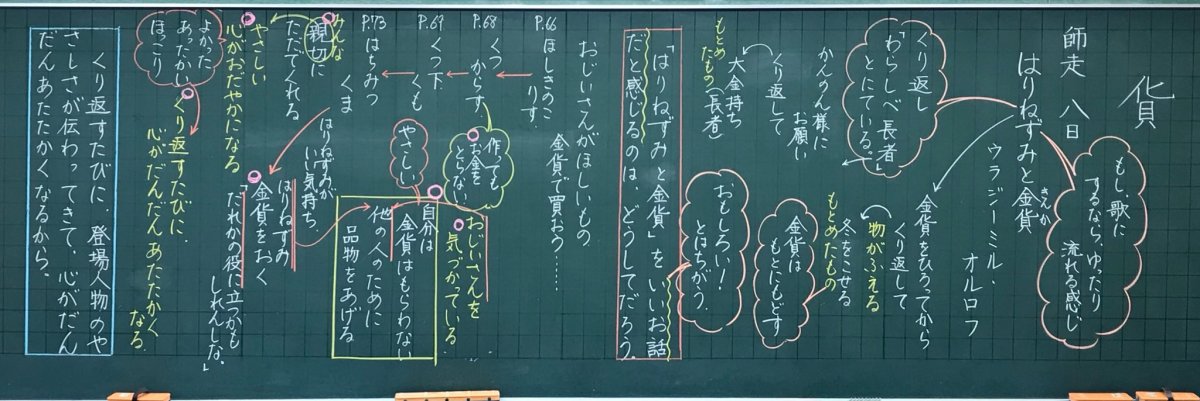 貨
もし、歌に
するなら、ゆったり
流れる感じ
師走 八日
はりねずみと金貨
きんか
ウラジーミル・
オルロフ
くり返し
「わらしべ長者」
ににている。
金貨をひろってから
くり返して
物がふえる
冬をこせる
もとめたもの
金貨は
もとにもどす
かんのん様に
お願い
くり返して
大金持ち
(長者)
もとめ
たもの
おもしろい!
とはちがう。
「はりねずみと金貨」をいいお話
だと感じるのは、どうしてだろう。
おじいさんがほしいもの
金貨で買おう……
P.66 ほしきのこ
りす
P.68 くつ
からす
P.69 くつ下
くも
P.73 はちみつ
くま
作っても
お金を
とらない
おじいさんを
気づかっている
やさしい
自分は
金貨はもらわない
他の人のために
品物をあげる
みんな
親切に
ただでくれる
はりねずみが
いい気持ち
はりねずみ
金貨をおく
「だれかの役に立つかも
しれんしな。」
やさしい
心がおだやかになる
よかった
あったかい
ほっこり
くり返すたびに
心がだんだんあたたかく
なる
くり返すたびに、登場人物のや
さしさが伝わってきて、心がだん
だんあたたかくなるから。